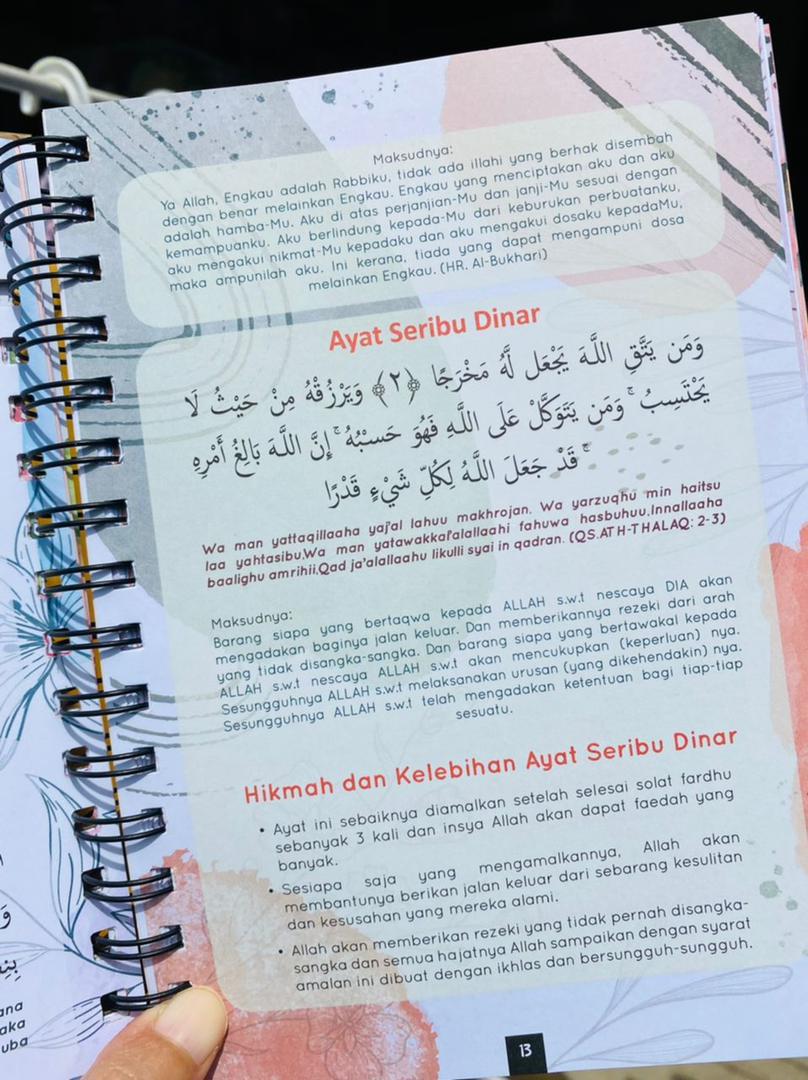 Maksudnya:
Ya Allah, Engkau adalah Rabbiku, tidak ada illahi yang berhak disembah
dengan benar melainkan Engkau. Engkau yang menciptakan aku dan aku
adalah hamba-Mu. Aku di atas perjanjian-Mu dan janji-Mu sesuai dengan
kemampuanku. Aku berlindung kepada-Mu dari keburukan perbuatanku,
aku mengakui nikmat-Mu kepadaku dan aku mengakui dosaku kepadaMu,
maka ampunilah aku. Ini kerana, tiada yang dapat mengampuni dosa
melainkan Engkau. (HR. Al-Bukhari)
Ayat Seribu Dinar
وَمَن يَتَّقِ اللَّهَ يَجْعَل لَّهُ مَخْرَجًا ﴿٢﴾ وَيَرْزُقْهُ مِنْ حَيْثُ لَا
يَحْتَسِبُ ۚ وَمَن يَتَوَكَّلْ عَلَى اللَّهِ فَهُوَ حَسْبُهُ ۚ إِنَّ اللَّهَ بَالِغُ أَمْرِهِ
ۚ قَدْ جَعَلَ اللَّهُ لِكُلِّ شَيْءٍ قَدْرًا
Wa man yattaqillaaha yaj'al lahuu makhrojan. Wa yarzuqhu min haitsu
laa yahtasibu,Wa man yatawakkal'alallaahi fahuwa hasbuhuu.Innallaaha
baalighu amrihii,Qad ja'alallaahu likulli syai in qadran. (QS.ATH-THALAQ: 2-3)
Maksudnya:
Barang siapa yang bertaqwa kepada ALLAH s.w.t nescaya DIA akan
mengadakan baginya jalan keluar. Dan memberikannya rezeki dari arah
yang tidak disangka-sangka. Dan barang siapa yang bertawakal kepada
ALLAH s.w.t nescaya ALLAH s.w.t akan mencukupkan (keperluan) nya.
Sesungguhnya ALLAH s.w.t melaksanakan urusan (yang dikehendakin) nya.
Sesungguhnya ALLAH s.w.t telah mengadakan ketentuan bagi tiap-tiap
sesuatu.
Hikmah dan Kelebihan Ayat Seribu Dinar
• Ayat ini sebaiknya diamalkan setelah selesai solat fardhu
sebanyak 3 kali dan insya Allah akan dapat faedah yang
banyak.
• Sesiapa saja yang mengamalkannya, Allah akan
membantunya berikan jalan keluar dari sebarang kesulitan
dan kesusahan yang mereka alami.
• Allah akan memberikan rezeki yang tidak pernah disangka-
sangka dan semua hajatnya Allah sampaikan dengan syarat
amalan ini dibuat dengan ikhlas dan bersungguh-sungguh.
13